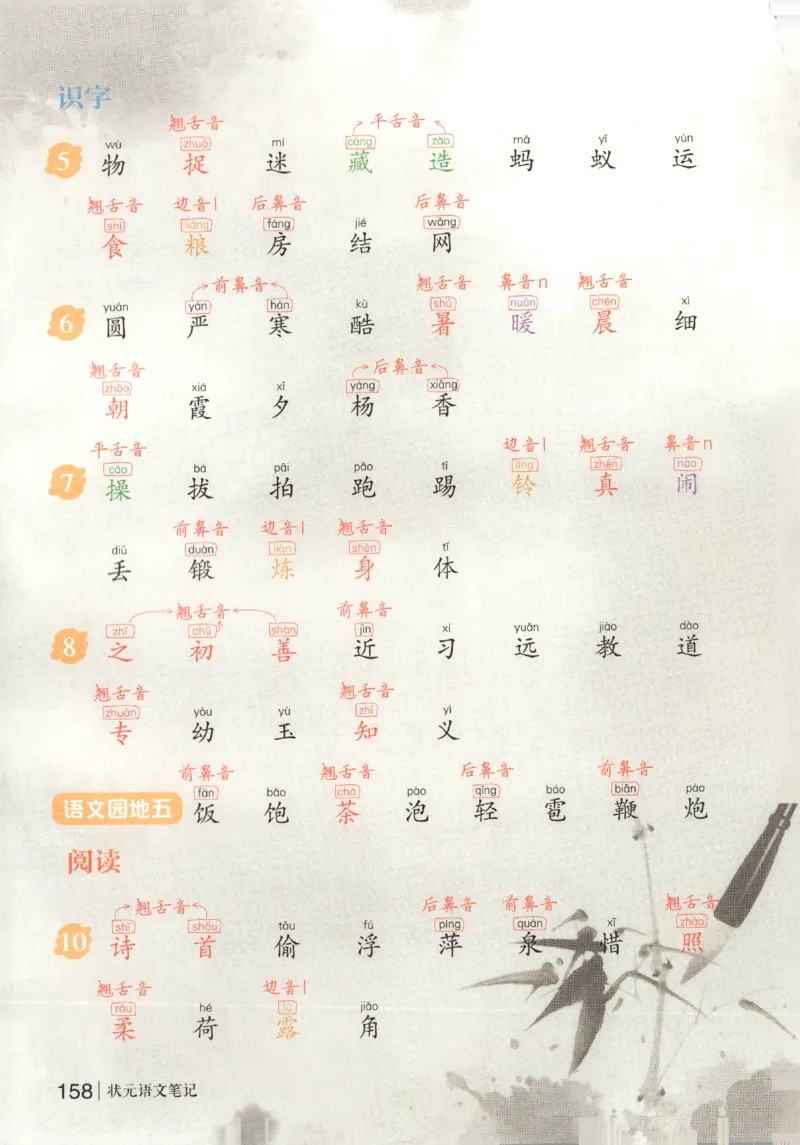 识字
翘舌音 平舌音
wù zhuō mí cáng zào mǎ yǐ yùn
5 物 捉 迷 藏 造 蚂 蚁 运
翘舌音 边音l 后鼻音 后鼻音
shí liáng fáng jié wǎng
食 粮 房 结 网
前鼻音 翘舌音 鼻音n 翘舌音
yuán yán hán kù shǔ nuǎn chén xì
6 圆 严 寒 酷 暑 暖 晨 细
翘舌音 后鼻音
zhāo xiá xī yáng xiāng
朝 霞 夕 杨 香
平舌音 边音l 翘舌音 鼻音n
cāo bá pāi pǎo tī líng zhēn nào
7 操 拔 拍 跑 踢 铃 真 闹
前鼻音 边音l 翘舌音
diū duàn liàn shēn tǐ
丢 锻 炼 身 体
翘舌音 前鼻音
zhī chū shàn jìn xí yuǎn jiào dào
8 之 初 善 近 习 远 教 道
翘舌音 翘舌音
zhuān yòu yù zhī yì
专 幼 玉 知 义
前鼻音 翘舌音 后鼻音 前鼻音
fàn bǎo chá pào qīng báo biān pào
语文园地五 饭 饱 茶 泡 轻 雹 鞭 炮
阅读
翘舌音 后鼻音 前鼻音 翘舌音
shī shǒu tōu fú píng quán xī zhào
10 诗 首 偷 浮 萍 泉 惜 照
翘舌音 边音l
róu hé lù jiǎo
柔 荷 露 角
158 状元语文笔记